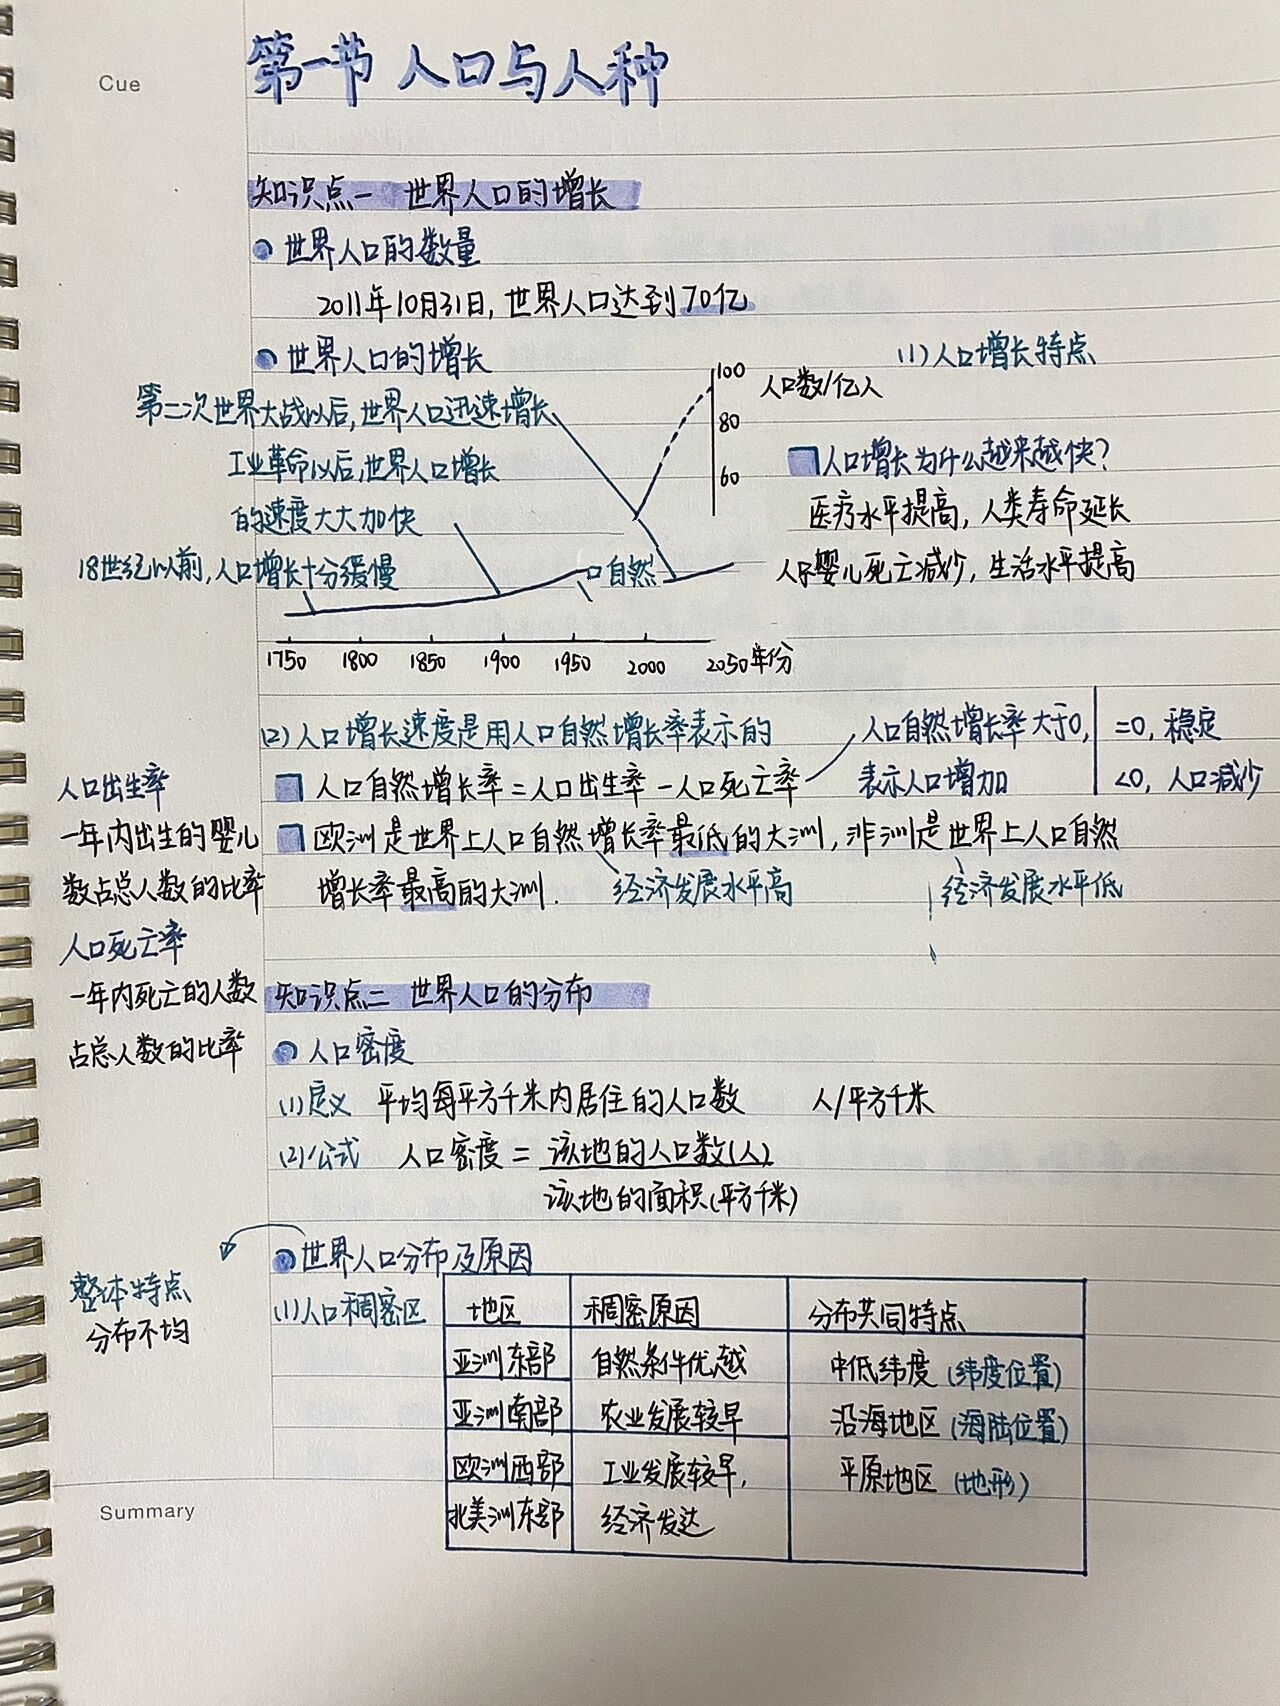 Cue
第一节 人口与人种
知识点一 世界人口的增长
世界人口的数量
2011年10月31日，世界人口达到70亿
世界人口的增长
(1)人口增长特点
第二次世界大战以后，世界人口迅速增长
工业革命以后，世界人口增长
的速度大大加快
18世纪以前，人口增长十分缓慢
100
人口数/亿人
80
60
口自然
1750 1800 1850 1900 1950 2000 2050年份
人口增长为什么越来越快？
医疗水平提高，人类寿命延长
婴儿死亡减少，生活水平提高
(2)人口增长速度是用人口自然增长率表示的
人口自然增长率大于0，
表示人口增加
=0，稳定
<0，人口减少
人口自然增长率=人口出生率-人口死亡率
欧洲是世界上人口自然增长率最低的大洲，非洲是世界上人口自然
增长率最高的大洲.
经济发展水平高
经济发展水平低
人口出生率
一年内出生的婴儿
数占总人数的比率
人口死亡率
一年内死亡的人数
占总人数的比率
知识点二 世界人口的分布
人口密度
(1)定义 平均每平方千米内居住的人口数 人/平方千米
(2)公式 人口密度=该地的人口数(人)
该地的面积(平方千米)
世界人口分布及原因
整体特点
分布不均
(1)人口稠密区
地区 稠密原因 分布共同特点
亚洲东部 自然条件优越 中低纬度(纬度位置)
亚洲南部 农业发展较早 沿海地区(海陆位置)
欧洲西部 工业发展较早， 平原地区(地形)
北美洲东部 经济发达
Summary